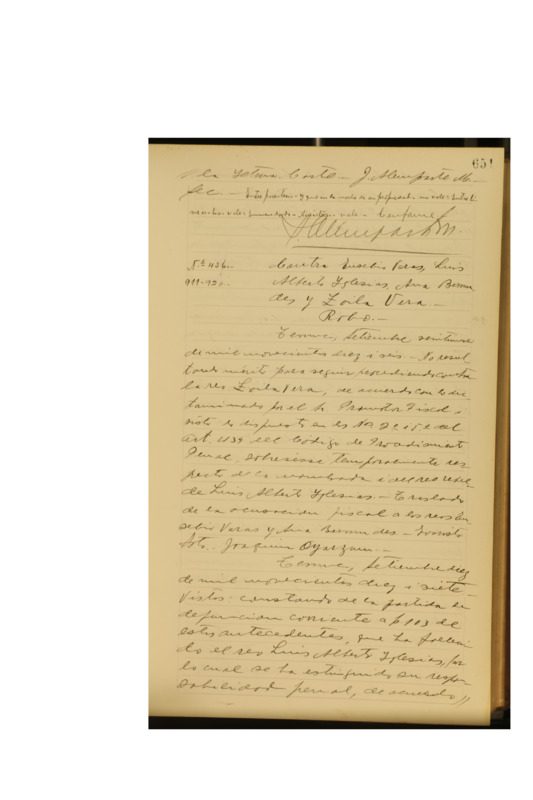 651
la Iltma Corte - J. Alemparte M. -
Sec. -
J Alemparte M.
No. 436.
Contra Eusebio Veras, Luis
911-920.
Alberto Yglesias, Ana Bermu
des y Zoila Vera. -
Robo. -
Temuco, Setiembre veintinueve
de mil novecientos diez i seis. - No resul
tando mérito para seguir procediendo contra
la reo Zoila Vera, de acuerdo con lo dic
taminado por el Sr Promotor Fiscal i
visto lo dispuesto en el No 2 del
art. 439 del Código de Procedimiento
Penal, sobreseese temporalmente res
pecto de la nombrada i del reo
de Luis Alberto Yglesias. - Traslado
de la acusacion fiscal a los reos Eu
sebio Veras y Ana Bermudes. -
Joaquin Oyarzun. -
Temuco, Setiembre diez
de mil novecientos diez i siete -
Vistos: constando de la partida de
defuncion corriente a f 103 de
estos antecedentes, que ha falleci
do el reo Luis Alberto Yglesias, por
lo cual se ha estinguido su respon
sabilidad penal, de acuerdo //